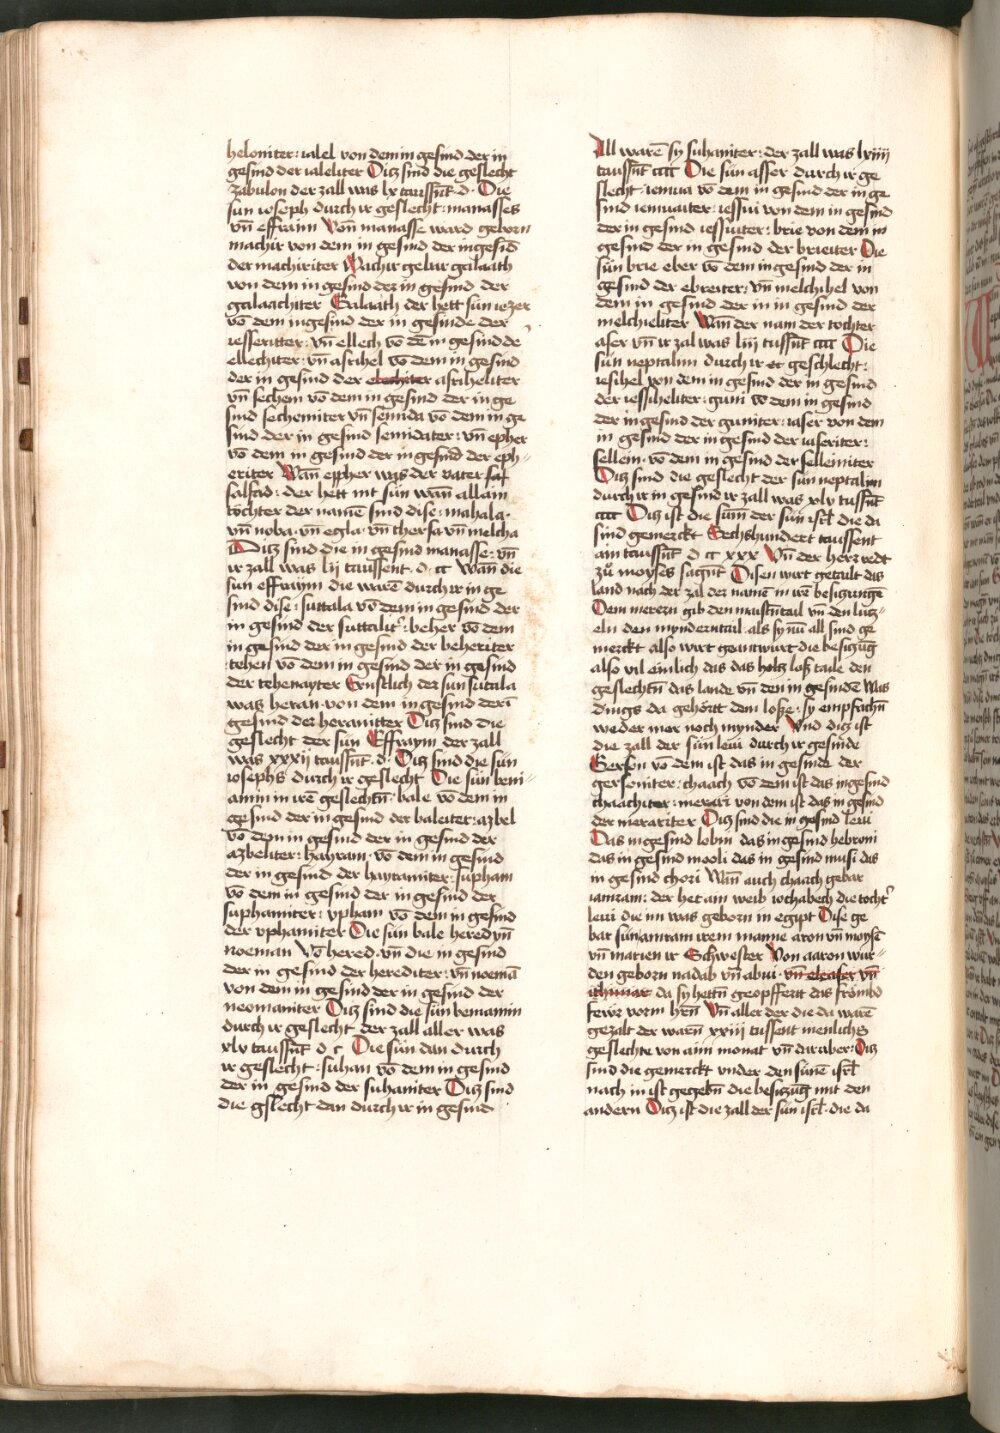 heloniter : ialel von dem in gesind der in
gesind der ialeliter Ditz sind die geslecht
zabulon der zall was lx taussn̄t · d · Die
sun ioseph durch ir geslecht : manasses
vn̄ effraim Von manasse ward geborn
machir von dem in gesind der ingesid
der machiriter Machir gebar galaath
von dem in gesind der in gesind der
galaachiter Galaath der hett sun iezer
vō dem ingesind der in gesinde der
iesseritter : vn̄ ellech vō dē in gesind de
ellechiter : vn̄ asrihel vō dem in gesind
der in gesind der asriheliter
vn̄ sechem vō dem in gesind der in ge
sind sechemiter vn̄ semida vō dem in ge
sind der in gesind semidater : vn̄ epher
vō dem in gesind der in gesind der eph
eriter Wan̄ epher was der vater saf
falsad : der hett nit sun wan̄ allain
tochter der namē sind dise : mahala ·
vn̄ noba · vn̄ egla · vn̄ thersa vn̄ melcha
Ditz sind die in gesind manasse : vn̄
ir zall was lij taussent · d · cc Wan̄ die
sun effraym die warē durch ir in ge
sind dise : suttala vō dem in gesind der
in gesind der suttalit' : beher vō dem
in gesind der in gesind der beheriter
tehen vō dem in gesind der in gesind
der tehenayter Ernstlich der sun sutala
was heran · von dem in gesind der i
gesind der heranitter Ditz sind die
geslecht der sun Effraym der zall
was xxxij taussn̄t · d · Ditz sind die sun
iosephs durch ir geslecht Die sun beni
amin in irē geslechtn̄ · bale vō dem in
gesind der in gesind der baleiter : azbel
vō dem in gesind der in gesind der
azbeliter : hayram · vō dem in gesind
der in gesind der hayramiter : supham
vō dem in gesind der in gesind der
suphamiter : vpham vō dem in gesind
der vphamiter Die sun bale hered vn̄
noeman Vō hered · vn̄ die in gesind
der in gesind der herediter : vn̄ noemā
von dem in gesind der in gesind der
neomaniter Ditz sind die sun beniamin
durch ir geslecht der zall aller was
xlv taussn̄t d c Die sun dan durch
ir geslecht : suhan vō dem in gesind
der in gesind der suhaniter Ditz sind
die gslecht dan durch ir in gesind
All warē sy suhaniter : der zall was lxiiij
taussn̄t cccc Die sun asser durch ir ge
slecht : iemua vō dem in gesind der in ge
sind iemuaiter : iessui von dem in gesind
der in gesind iessuiter : brie von dem in
gesind der in gesind der brieiter Die
sun brie eber vō dem in gesind der in
gesind der ebreiter : vn̄ melchihel von
dem in gesind der in in gesind der
melchieliter Wan̄ der nam der tochter
aser vn̄ ir zal was liij tussn̄t cccc Die
sun neptalim durch ir er geschlecht :
iesihel von dem in gesind der in gesind
der iessiheliter : guni vō dem in gesind
der in gesind der guniter : iaser von dem
in gesind der in gesind der iaseriter :
sellem · vō dem in gesind der sellemiter
Ditz sind die geslecht der sun neptalim
durch ir in gesind ir zall was xlv tussn̄t
cccc Ditz ist die sum̄ der sun isrl̄ die da
sind gemerckt Sechshundert taussent
ain taussn̄t d cc xxx Vn̄ der herr redt
zů moyses sagn̄t Disen wirt getailt das
land nach der zal der namē in irē besitzungē
Dem merern gib den maistn̄tail vn̄ den lutz
eln den myndern tail · als sy nu all sind ge
merckt also wirt geantwurt die besitzūg
also vil ainlich das das holtz loß taile den
geslechtn̄ das lande vn̄ den in gesindē Was
dings da gehörtt dem loße : sy empfachn̄
weder mer noch mynder Vnd ditz ist
die zall der sun leui durch ir gesinde
Gerson vō dem ist das in gesinde der
gersoniter : chaach vō dem ist das ingesind
chaachiter : merari von dem ist das in gesind
der merariter Ditz sind die in gesind leui
Das in gesind lobin das in gesind hebroni
das in gesind mooli das in gesind musi das
in gesind chori Wan̄ auch chaach gebar
iamram : der het ain weib iochabech die tocht'
leui die im was geborn in egipt Dise ge
bar sun amram irem manne aron vn̄ moysē
vn̄ marien ir Schwester Von aaron wur
den geborn nadab vn̄ abiu · vn̄ eleaser vn̄
ithimar da sy hettn̄ geopffertt das frömbd
fewr vorm hrn̄ Vn̄ aller der die da warē
gezalt der warn̄ xxiij tussent menlichs
geslechte von aim monat vn̄ daraber : Ditz
sind die gemerckt vnder den sunē isrl̄
nach in ist gegebn̄ die besitzūg mit den
andern Ditz ist die zall der sun isrl̄ · die da